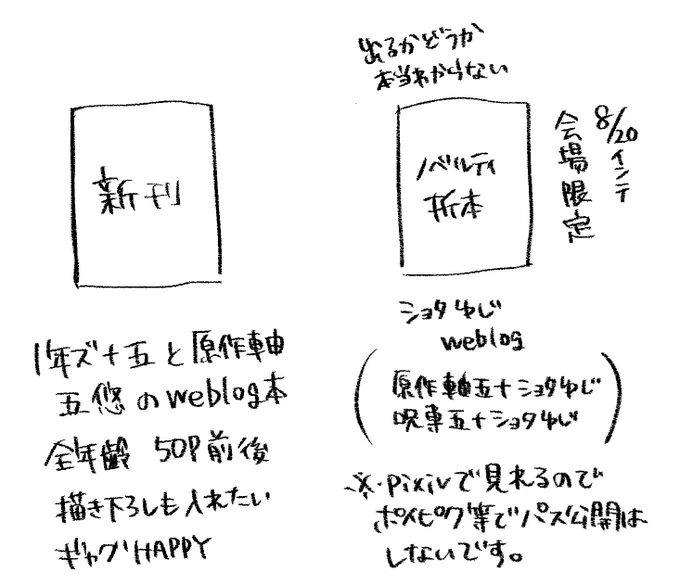 新刊
1年ズ+五と原作軸
五悠のweblog本
全年齢 50P前後
描き下ろしも入れたい
ギャグHAPPY
出るかどうか
本当わからない
ノベルティ
折本
8/20インテ
会場限定
ショタゆじ
weblog
(原作軸五+ショタゆじ
呪専五+ショタゆじ)
※・pixivで見れるので
ポイピク等でパス公開は
しないです。